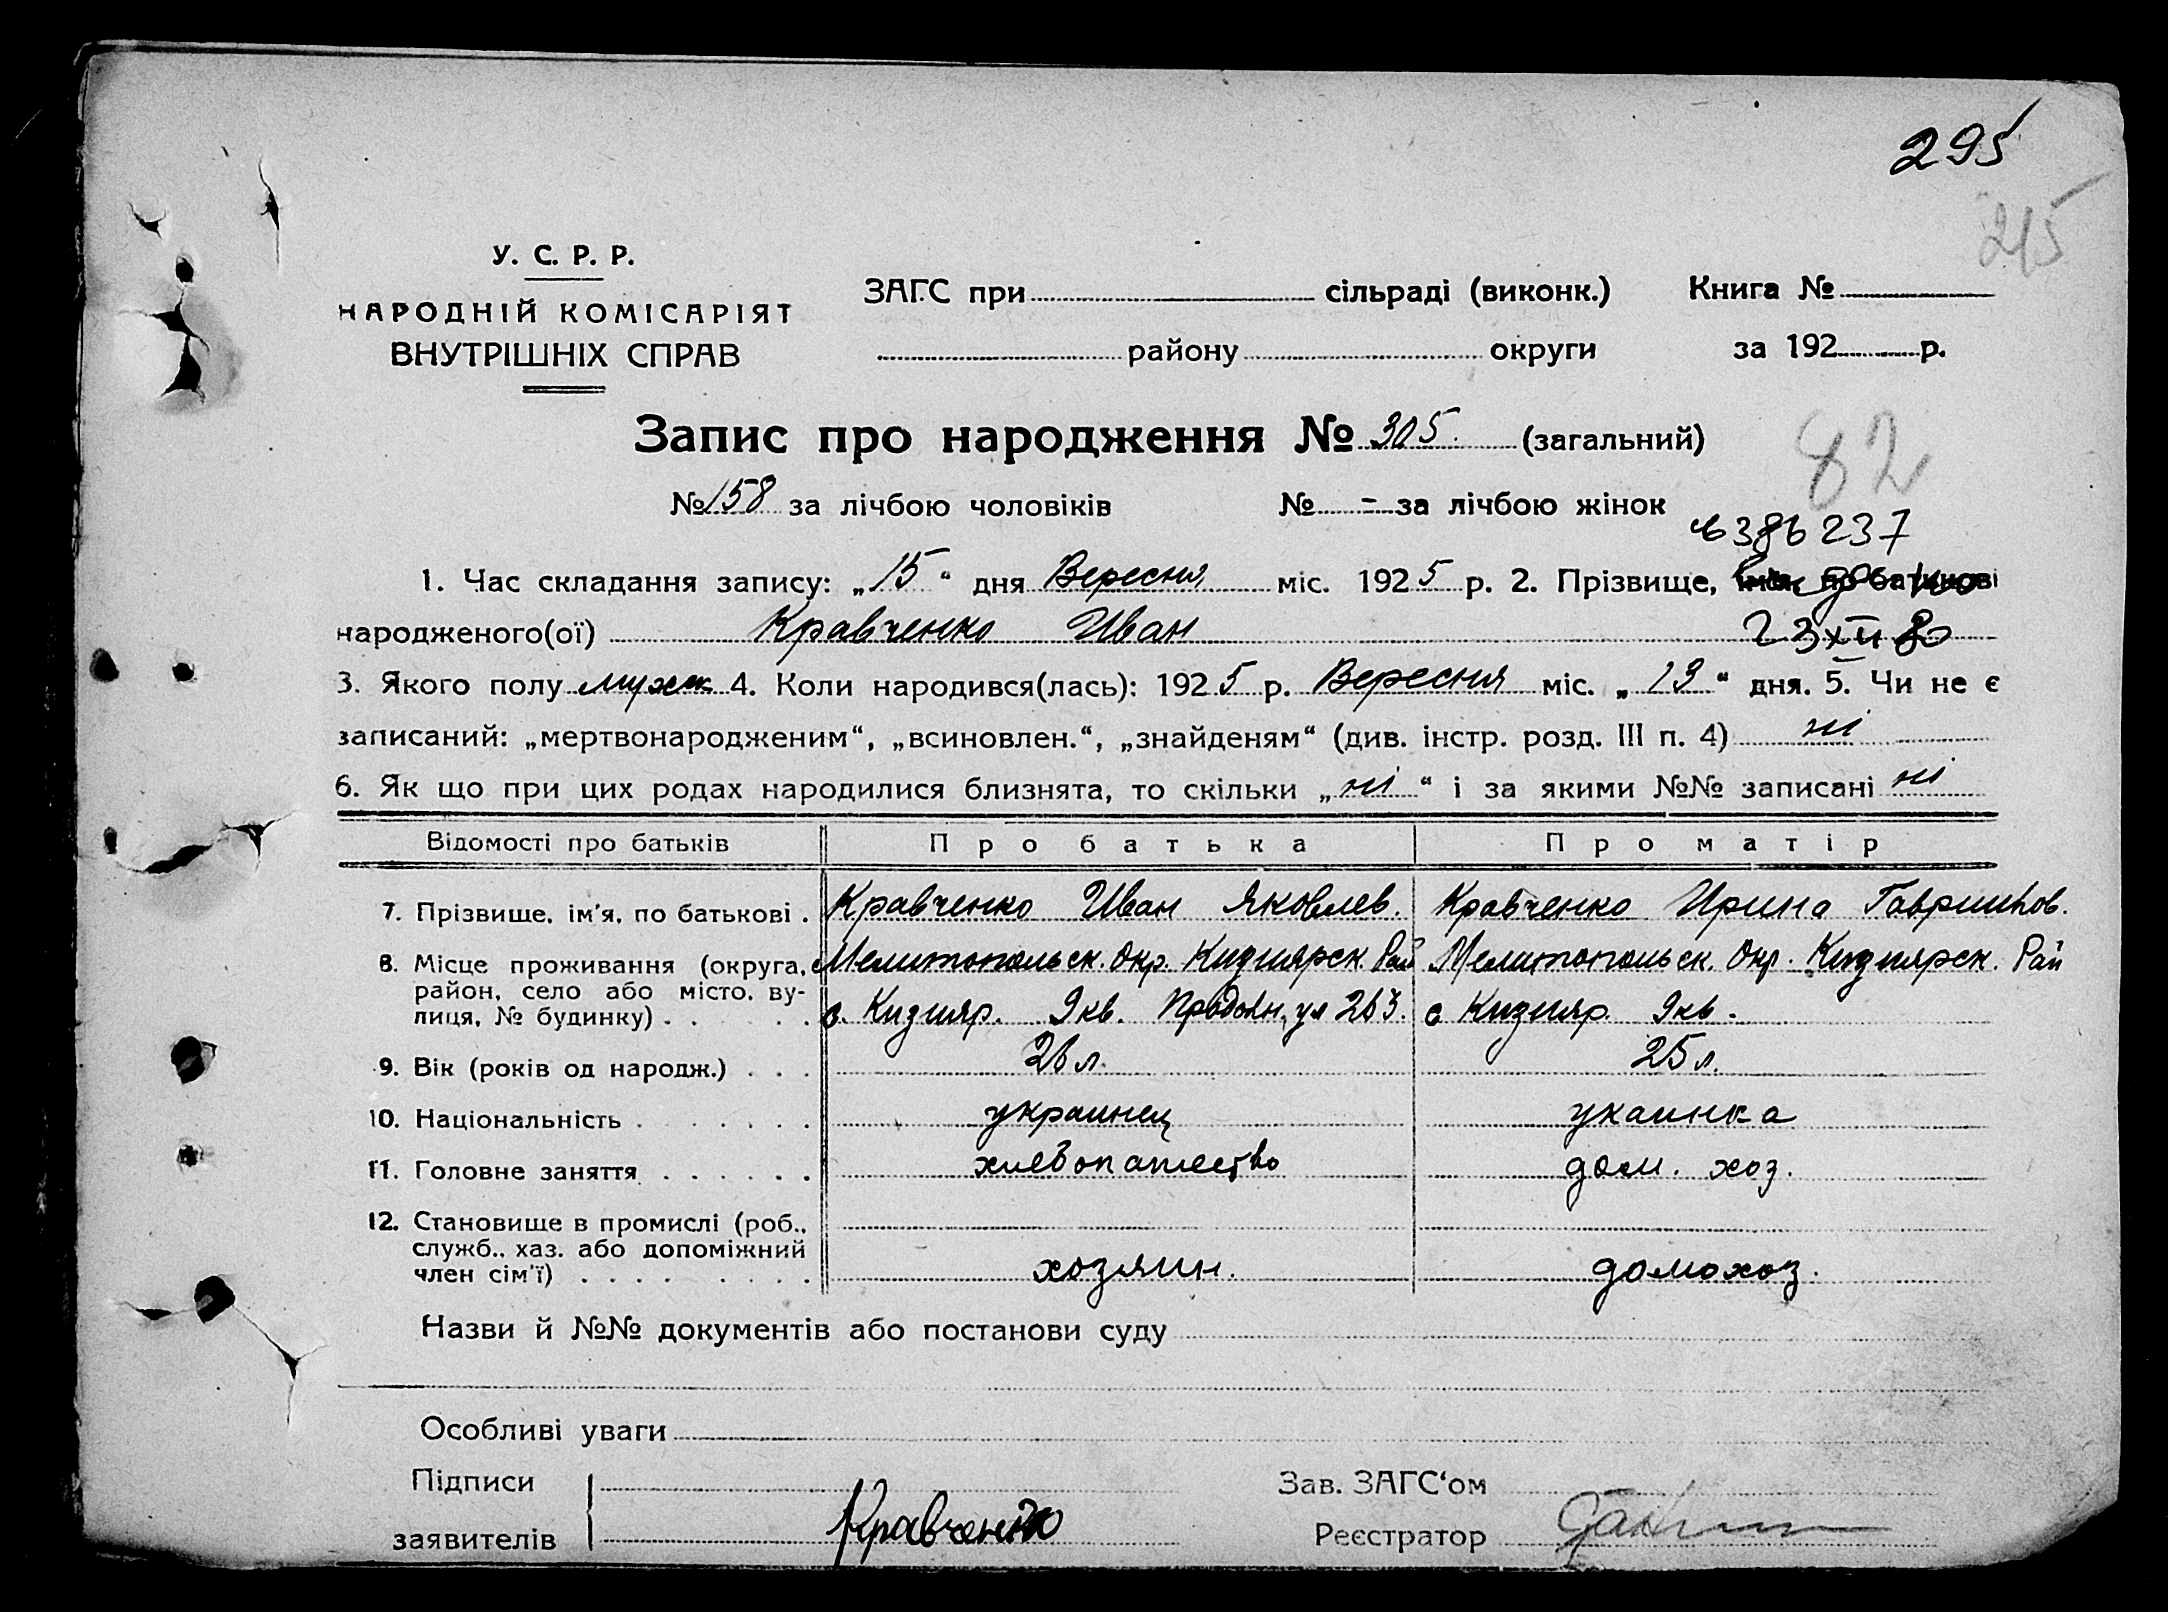 295
215
У. С. Р. Р.
НАРОДНІЙ КОМІСАРІЯТ
ВНУТРІШНІХ СПРАВ
ЗАГС при сільраді (виконк.) Книга №
району округи за 192 р.
Запис про народження № 305. (загальний)
82
№ 158 за лічбою чоловіків № = за лічбою жінок
386237
1. Час складання запису: „15“ дня Вересня міс. 1925 р. 2. Прізвище, ім'я, по батькові
народженого(ої) Кравченко Иван
23 XII 80
3. Якого полу мужск. 4. Коли народився(лась): 1925 р. Вересня міс. „13“ дня. 5. Чи не є
записаний: „мертвонародженим“, „всиновлен.“, „знайденям“ (див. інстр. розд. III п. 4) ні
6. Як що при цих родах народилися близнята, то скільки „ні“ і за якими №№ записані ні
Відомості про батьків Про батька Про матір
7. Прізвище, ім'я, по батькові . Кравченко Иван Яковлев. Кравченко Ирина Гавришков.
8. Місце проживання (округа, Мелитопольск. Окр. Кизиярск. Рай Мелитопольск. Окр. Кизиярск. Рай
район, село або місто, ву-
лиця, № будинку) . с. Кизияр. 9кв. ул 263. с Кизияр 9кв.
9. Вік (років од народж.) . . . 26 л. 25 л.
10. Національність . украинец укаинка
11. Головне заняття . хлебопашество дом. хоз.
12. Становище в промислі (роб.,
служб., хаз. або допоміжний
член сім'ї) . хозяин. домохоз.
Назви й №№ документів або постанови суду
Особливі уваги
Підписи Зав. ЗАГС'ом
заявителів Кравченко Реєстратор